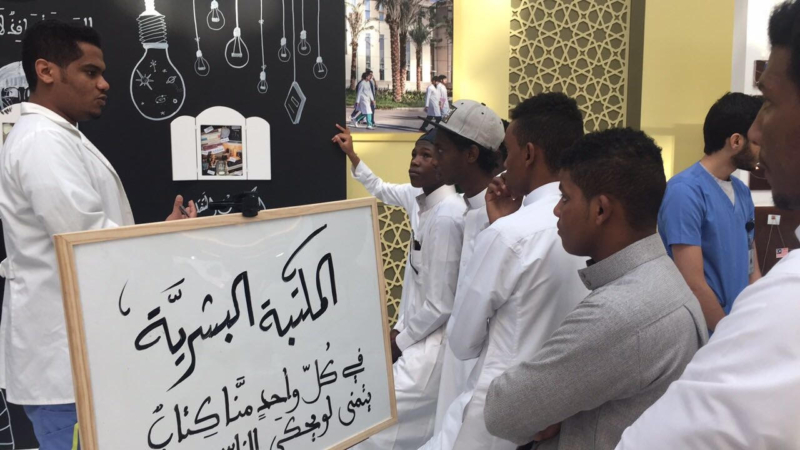 المكتبة البشريَّة
في كُلّ واحِدٍ منَّا كِتابٌ
يتمنى لو يحكي الناس